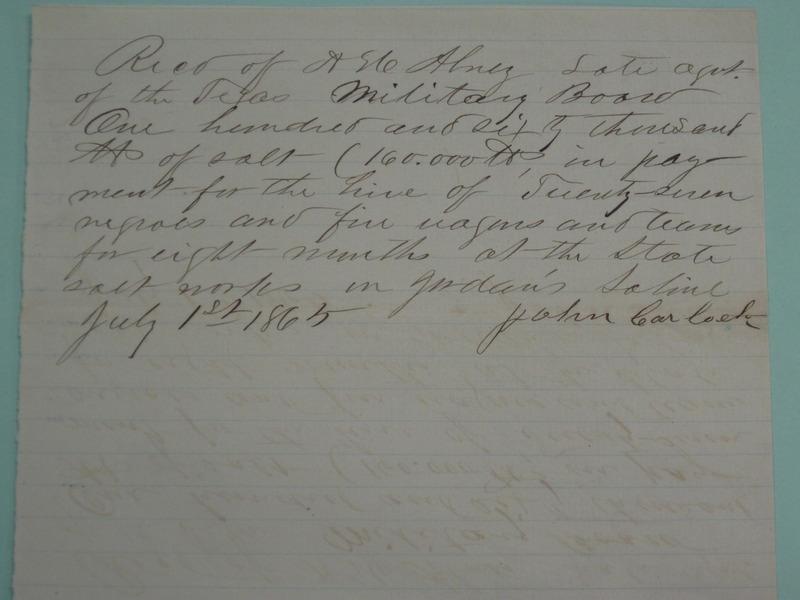 Recd of A H Abney Late agt.
of the Texas Military Board
One hundred and sixty thousand
lbs of salt (160.000 lbs, in pay
ment for the hire of Twenty-seven
negroes and five wagons and teams
for eight months at the State
salt works in Jordan's Saline
July 1st 1865 John Carlock